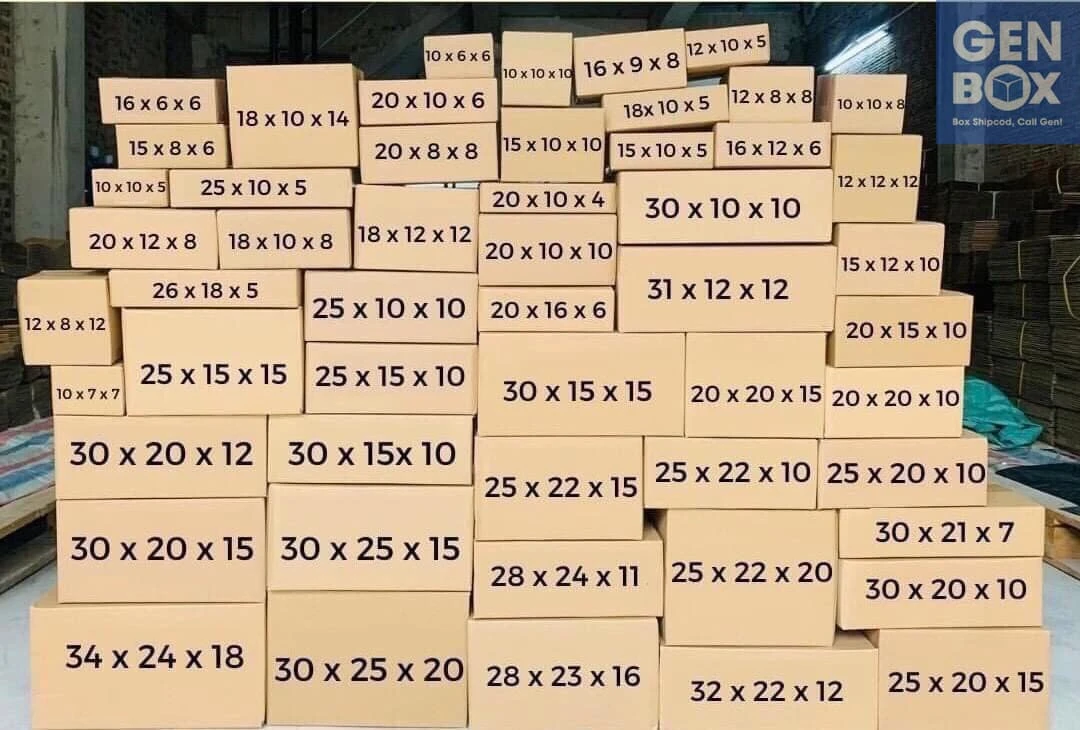 GEN
BOX
Box Shipcod, Call Gen!
10 x 6 x 6
10 x 10 x 10
16 x 9 x 8
12 x 10 x 5
16 x 6 x 6
18 x 10 x 14
20 x 10 x 6
18x 10 x 5
12 x 8 x 8
10 x 10 x 8
15 x 8 x 6
20 x 8 x 8
15 x 10 x 10
15 x 10 x 5
16 x 12 x 6
10 x 10 x 5
25 x 10 x 5
20 x 10 x 4
30 x 10 x 10
12 x 12 x 12
20 x 12 x 8
18 x 10 x 8
18 x 12 x 12
20 x 10 x 10
31 x 12 x 12
15 x 12 x 10
26 x 18 x 5
12 x 8 x 12
25 x 10 x 10
20 x 16 x 6
20 x 15 x 10
25 x 15 x 15
25 x 15 x 10
30 x 15 x 15
20 x 20 x 15
20 x 20 x 10
10 x 7 x 7
30 x 20 x 12
30 x 15x 10
25 x 22 x 15
25 x 22 x 10
25 x 20 x 10
30 x 20 x 15
30 x 25 x 15
28 x 24 x 11
25 x 22 x 20
30 x 21 x 7
30 x 20 x 10
34 x 24 x 18
30 x 25 x 20
28 x 23 x 16
32 x 22 x 12
25 x 20 x 15